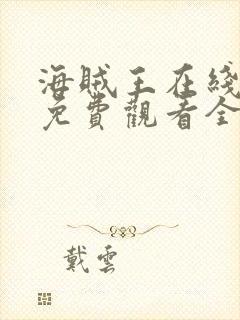 海贼王在綫
免費觀看全
戴雲